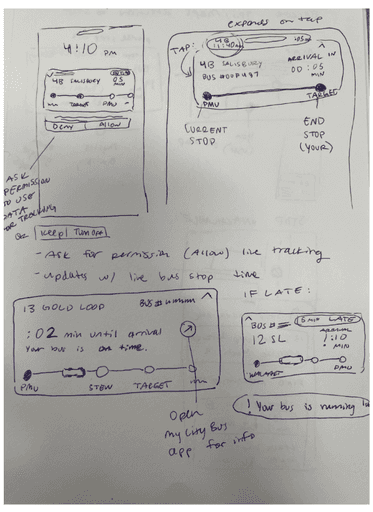 expands on tap
4:10 PM
4B SALISBURY
05
MIN
TARGET PMU
DENY | ALLOW
ASK
PERMISSION
TO USE
DATA
FOR TRACKING
OR Keep | Turn off
TAP:
4B
11:40AM
:05
4B SALISBURY
ARRIVAL IN
00:05
MIN
PMU
TARGET
CURRENT
STOP
END
STOP
(YOUR)
- Ask for permission (Allow) live tracking
- updates w/ live bus stop time
13 GOLD LOOP
BUS#
:02 min until arrival
Your bus is on time.
PMU STEW TARGET
Open
myCityBus
app for info
IF LATE:
BUS#
5 MIN LATE
12 SL
ARRIVAL
1:10
MIN
WALMART
PMU
! Your bus is running